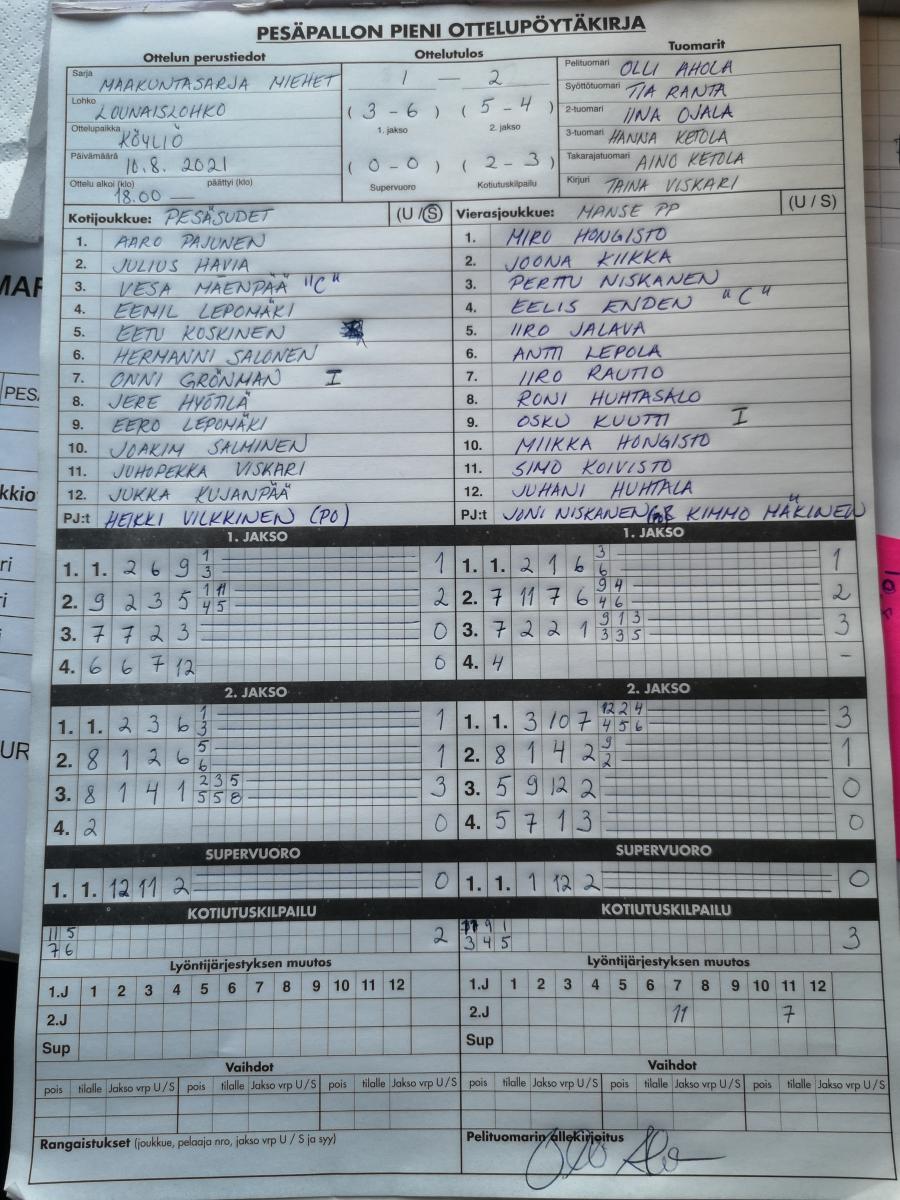 PESÄPALLON PIENI OTTELUPÖYTÄKIRJA
Ottelun perustiedot
Sarja MAAKUNTASARJA MIEHET
Lohko LOUNAISLOHKO
Ottelupaikka KÖYLIÖ
Päivämäärä 10.8. 2021
Ottelu alkoi (klo) 18.00 päättyi (klo) —
Ottelutulos
1 — 2
( 3 - 6 ) ( 5 - 4 )
1. jakso 2. jakso
( 0 - 0 ) ( 2 - 3 )
Supervuoro Kotiutuskilpailu
Tuomarit
Pelituomari OLLI AHOLA
Syöttötuomari TIA RANTA
2-tuomari IINA OJALA
3-tuomari HANNA KETOLA
Takarajatuomari AINO KETOLA
Kirjuri TAINA VISKARI
Kotijoukkue: PESÄSUDET (U / S)
1. AARO PAJUNEN
2. JULIUS HAVIA
3. VESA MÄENPÄÄ "C"
4. EEMIL LEPOMÄKI
5. EETU KOSKINEN
6. HERMANNI SALONEN
7. ONNI GRÖNMAN I
8. JERE HYÖTILÄ
9. EERO LEPOMÄKI
10. JOAKIM SALMINEN
11. JUHOPEKKA VISKARI
12. JUKKA KUJANPÄÄ
PJ:t HEIKKI VILKKINEN (PO)
Vierasjoukkue: MANSE PP (U / S)
1. MIRO HONGISTO
2. JOONA KIIKKA
3. PERTTU NISKANEN
4. EELIS ENDEN "C"
5. IIRO JALAVA
6. ANTTI LEPOLA
7. IIRO RAUTIO
8. RONI HUHTASALO
9. OSKU KUUTTI I
10. MIIKKA HONGISTO
11. SIMO KOIVISTO
12. JUHANI HUHTALA
PJ:t JONI NISKANEN KIMMO MÄKINEN
1. JAKSO
1. 1. 2 6 9 1 1
3
2. 9 2 3 5 1 11 2
4 5
3. 7 7 2 3 0
4. 6 6 7 12 0
1. JAKSO
1. 1. 2 1 6 3 1
6
2. 7 11 7 6 9 4 2
4 6
3. 7 2 2 1 9 1 3 3
3 3 5
4. 4 –
2. JAKSO
1. 1. 2 3 6 1 1
3
2. 8 1 2 6 5 1
6
3. 8 1 4 1 2 3 5 3
5 5 8
4. 2 0
2. JAKSO
1. 1. 3 10 7 12 2 4 3
4 5 6
2. 8 1 4 2 9 1
2
3. 5 9 12 2 0
4. 5 7 1 3 0
SUPERVUORO
1. 1. 12 11 2 0
SUPERVUORO
1. 1. 1 12 2 0
KOTIUTUSKILPAILU
11 5 2
7 6
KOTIUTUSKILPAILU
11 9 1 3
3 4 5
Lyöntijärjestyksen muutos
1.J 1 2 3 4 5 6 7 8 9 10 11 12
2.J
Sup
Lyöntijärjestyksen muutos
1.J 1 2 3 4 5 6 7 8 9 10 11 12
2.J 11 7
Sup
Vaihdot
pois tilalle Jakso vrp U / S pois tilalle Jakso vrp U / S pois tilalle Jakso vrp U / S
Vaihdot
pois tilalle Jakso vrp U / S pois tilalle Jakso vrp U / S pois tilalle Jakso vrp U / S
Rangaistukset (joukkue, pelaaja nro, jakso vrp U / S ja syy)
Pelituomarin allekirjoitus